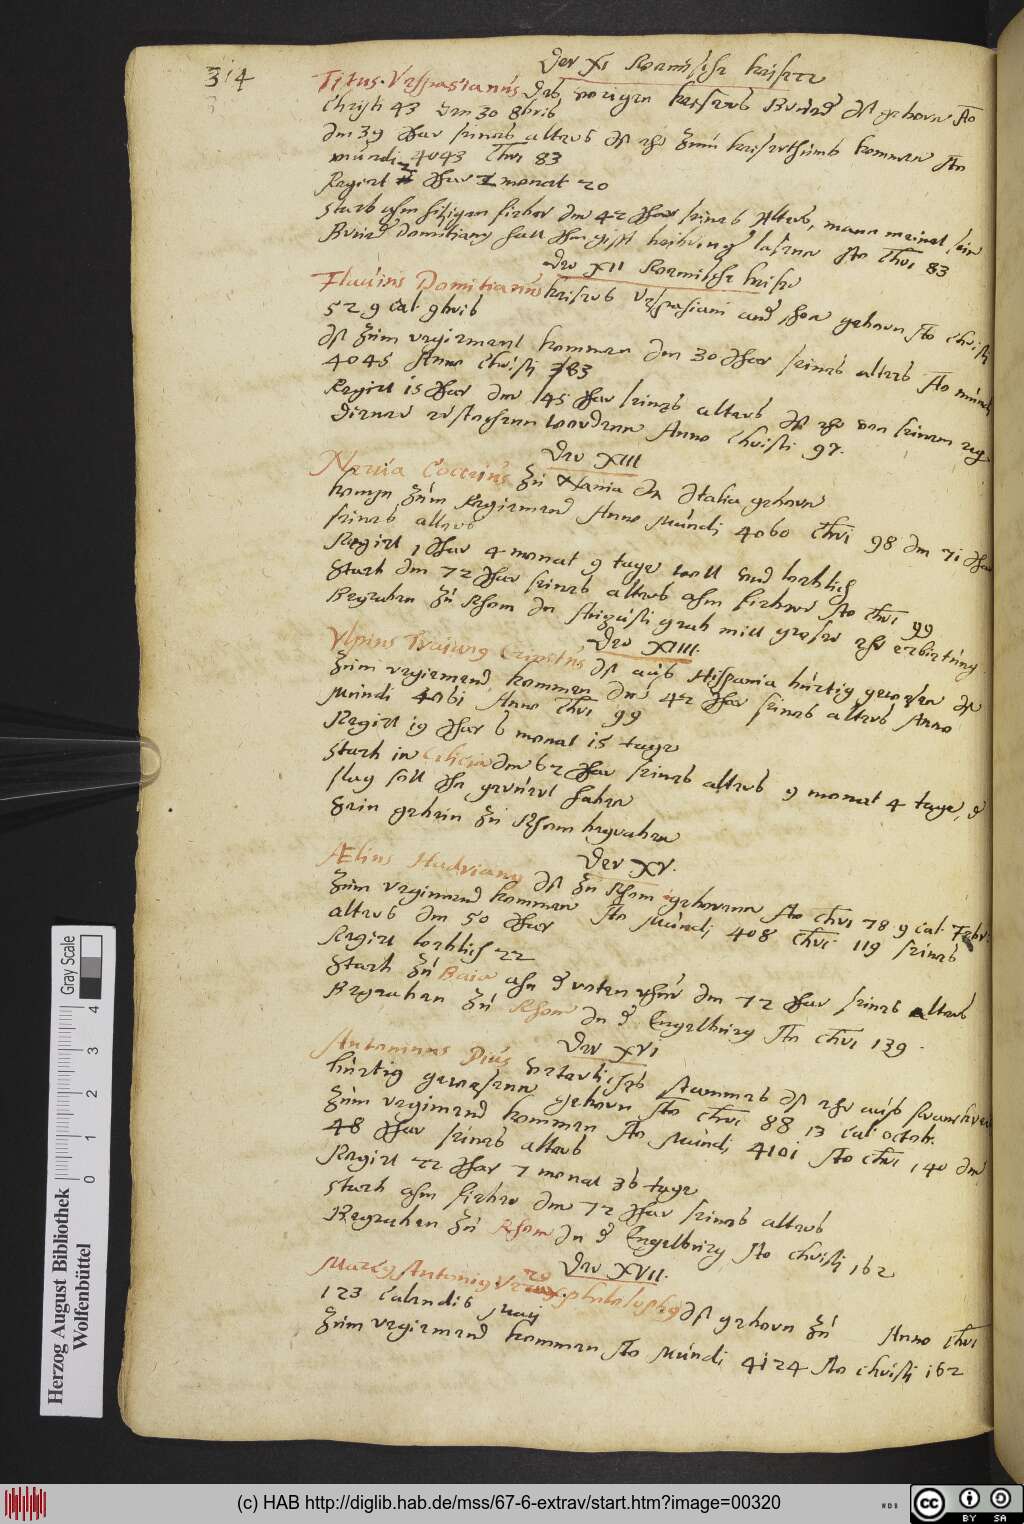 314
Der XI Roemische keiser
Titus. Vespasianus des vorigen keisers Bruder Ist geborn Ao
Christi 43 den 30 8bris
Im 39 Jhar seines alters Ist ehr zum keiserthumb kommen An
mundi 4043 Chri 83
Regirt 2 Jhar 2 monat 20
Starb ahm hitzigen fieber Im 42 Jhar seines Alters, mann meinet sein
Bruder domitianus hatt Ihm gifft beibringen lassen Ao Chri 83
Der XII Roemische keiser
Flauius Domitianus keisers Vespasiani ander shon geborn Ao Christi
52 9 Cal 9bris
Ist zum regiement kommen den 30 Jhar seines alters Ao mundi
4045 Anno Christi 83
Regirt 15 Jhar Im 45 Jhar seines alters Ist ehr von seinem eig
Diener erstochenn wordenn Anno Christi 97.
Der XIII
Nerua Cocceius zu Nania In Italia geborn
komen zum Regiemend Anno Mundi 4060 Chri 98 Im 71 Jhar
seines alters
Regirt 1 Jhar 4 monat 9 tage woll und loeblich
Starb Im 72 Jhar seines alters ahm fieber Ao Chri 99
Begraben zu Rhom In Augusti grab mitt groser ehr erbietung
Der XIIII.
Vlpius Traianus Crinitus Ist aus Hispania burtig gewesen Ist
zum regiemend kommen Im 42 Jhar seines alters Anno
Mundi 4061 Anno Chri 99
Regirt 19 Jhar 6 monat 15 tage
Starb in Cilicia Im 62 Jhar seines alters 9 monat 4 tage, d
slag soll Ihn gerurt haben
Sein gebein zu Rhom begraben
Der XV.
Ælius Hadrianus Ist zu Rhom geborenn Ao Chri 78 9 Cal. Febr.
Zum regimend kommen Ao Mundi 408 Chri 119 seines
alters Im 50 Jhar
Regirt loeblich 22
Starb zu Baie ahn d roten rhur Im 72 Jhar seines alters
Begraben zu Rhom In d Engelburg Ao Chri 139.
Der XVI
Antoninus Pius stammes Ist ehr aus
burtig gewesenn geborn Ao Chri 88 13 Cal octob.
Zum regimend kommen Ao Mundi 4101 Ao Chri 140 Im
48 Jhar seines alters
Regirt 22 Jhar 7 monat 36 tage
Starb ahm fieber Im 72 Jhar seines alters
Begraben zu Rhom In d Engelburg Ao Christi 162
Der XVII.
Marcus Antonius philosophus Ist geborn zu Anno Chri
123 Calendis Maij
Zum regiemend kommen Ao Mundi 4124 Ao Christi 162
Herzog August Bibliothek
Wolfenbüttel
Gray Scale
0 1 2 3 4
(c) HAB http://diglib.hab.de/mss/67-6-extrav/start.htm?image=00320
WDB
CC BY SA